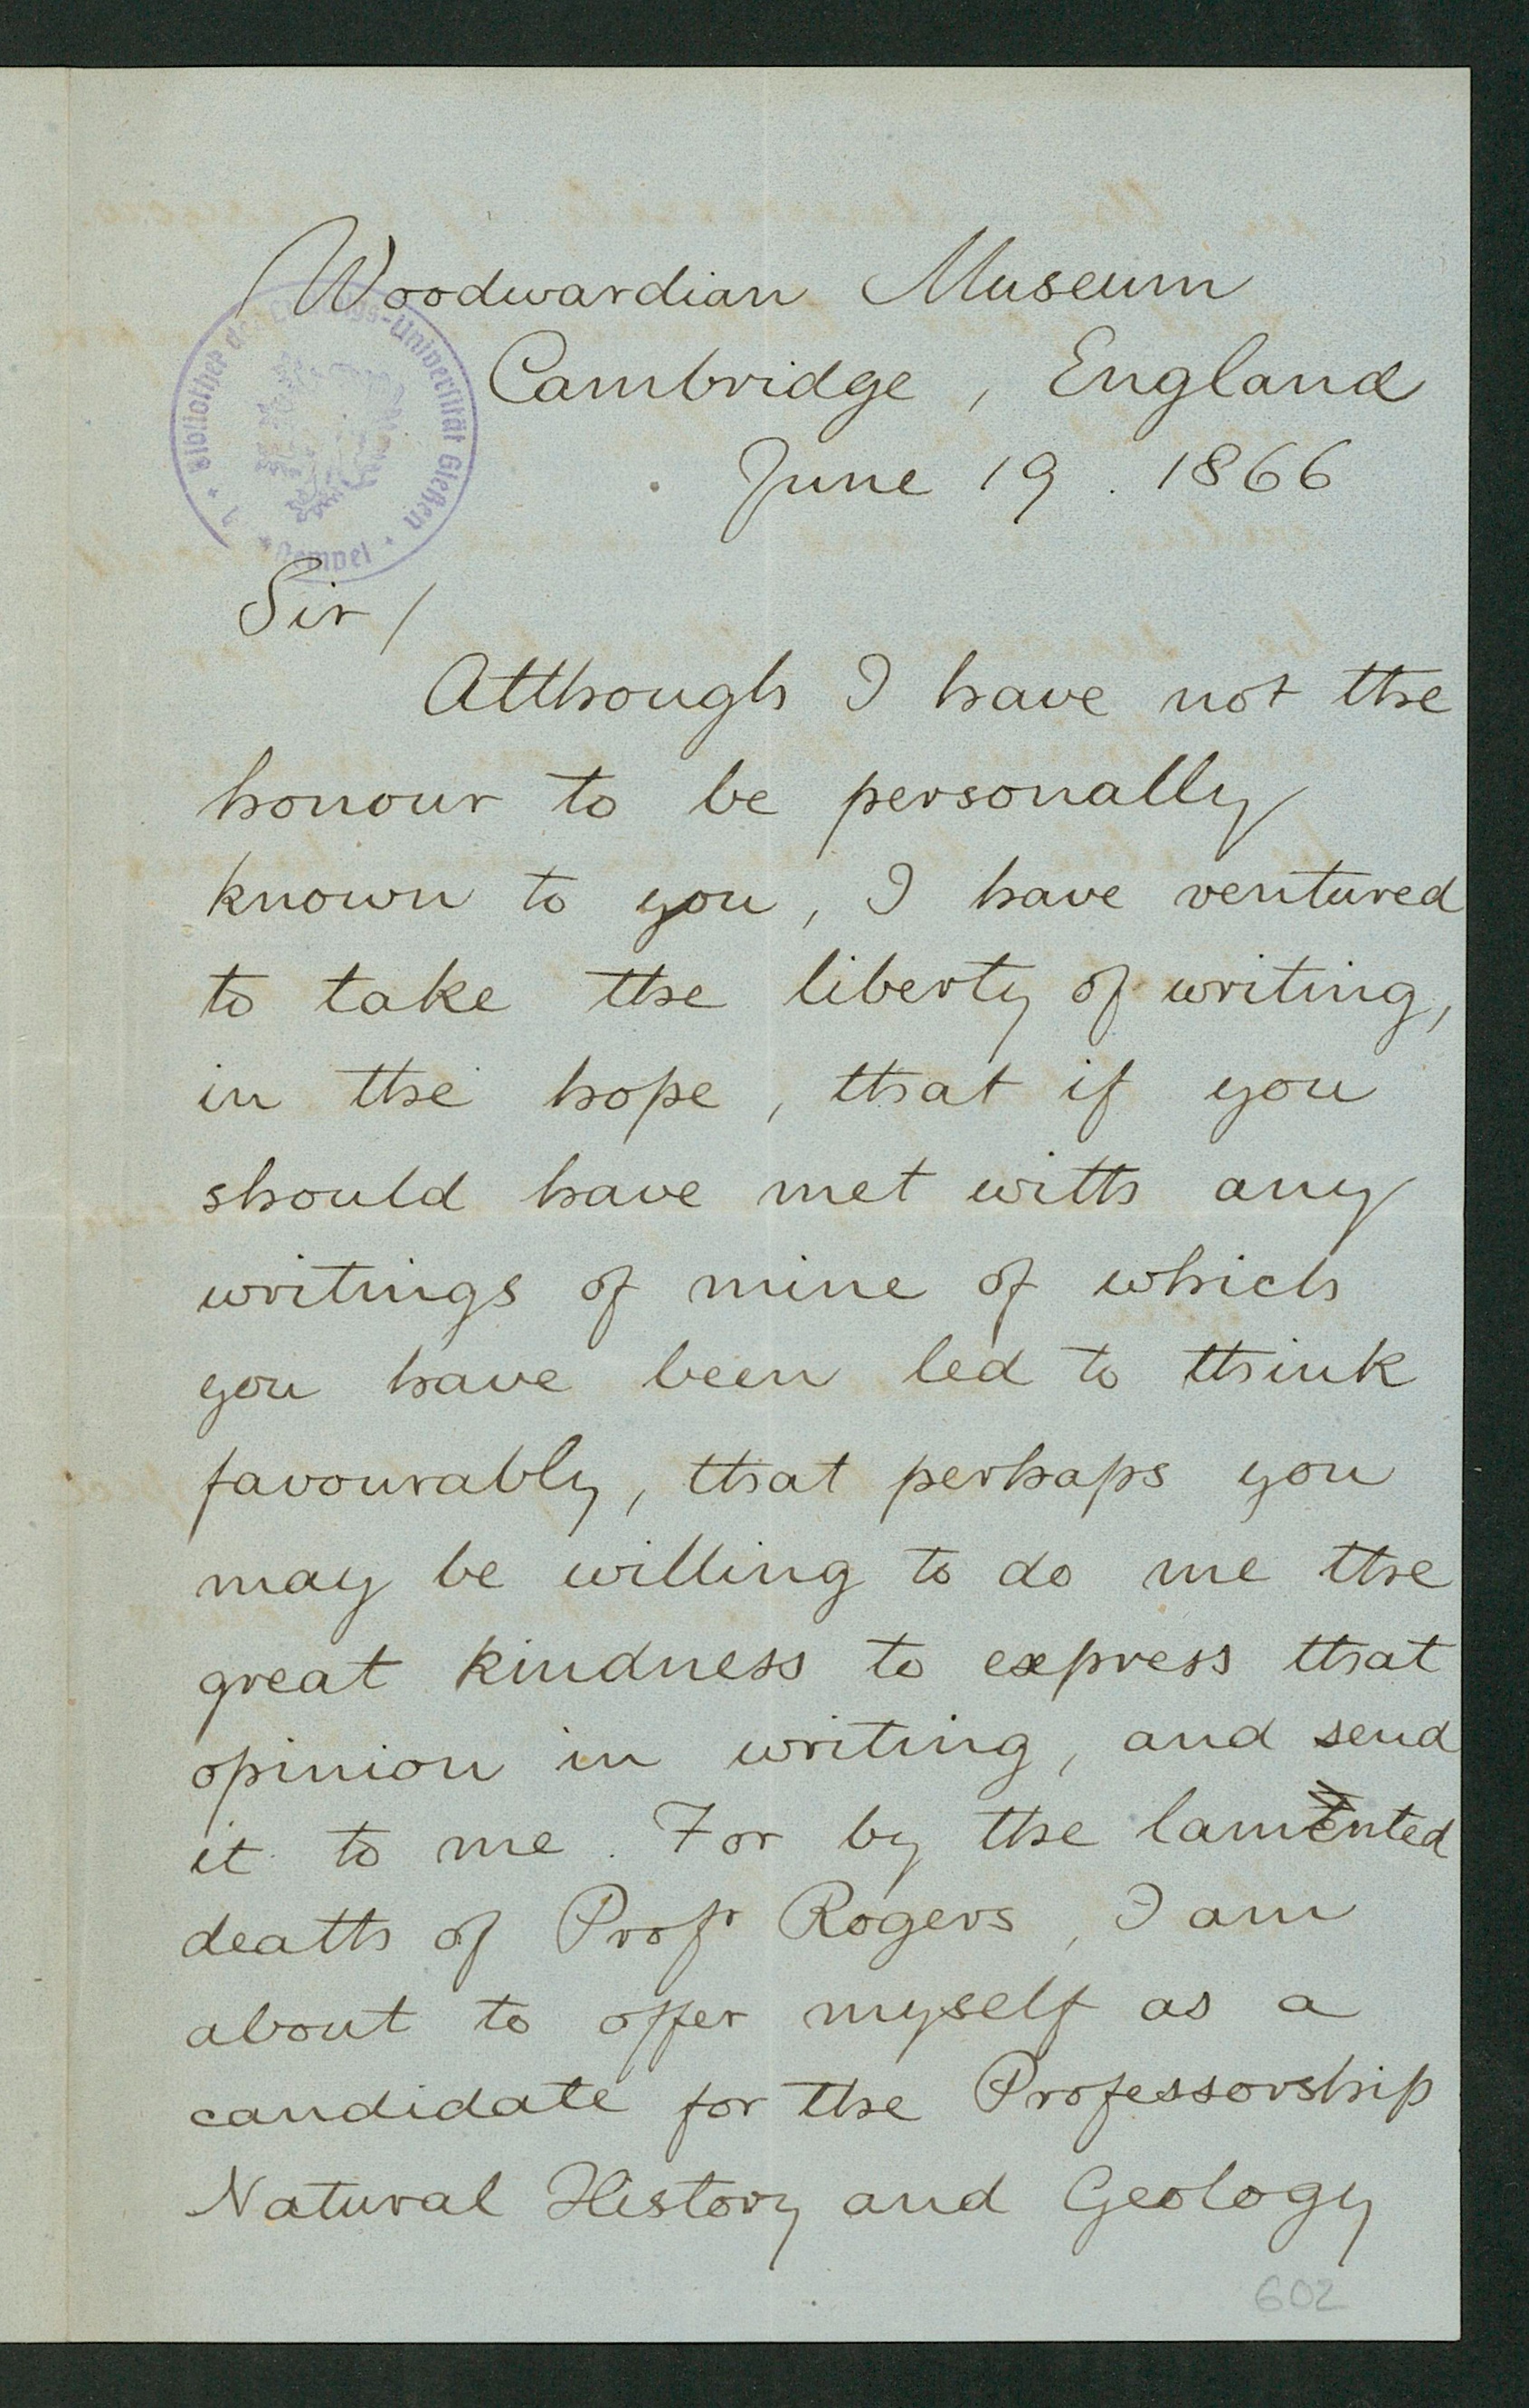 Woodwardian Museum
Cambridge, England
June 19. 1866
Bibliothek der Ludwigs-Universität Gießen
Sir/
Although I have not the
honour to be personally
known to you, I have ventured
to take the liberty of writing,
in the hope, that if you
should have met with any
writings of mine of which
you have been led to think
favourably, that perhaps you
may be willing to do me the
great kindness to express that
opinion in writing, and send
it to me. For by the lamented
death of Profr Rogers, I am
about to offer myself as a
candidate for the Professorship
Natural History and Geology
602